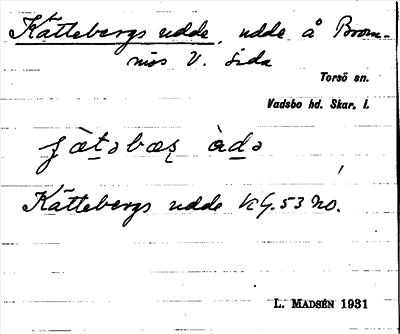 Kättebergs udde, udde å Brom-
mös V. sida
Torsö sn.
Vadsbo hd. Skar. l.
Kättebergs udde KG. 53 NO.
L. MADSÉN 1931